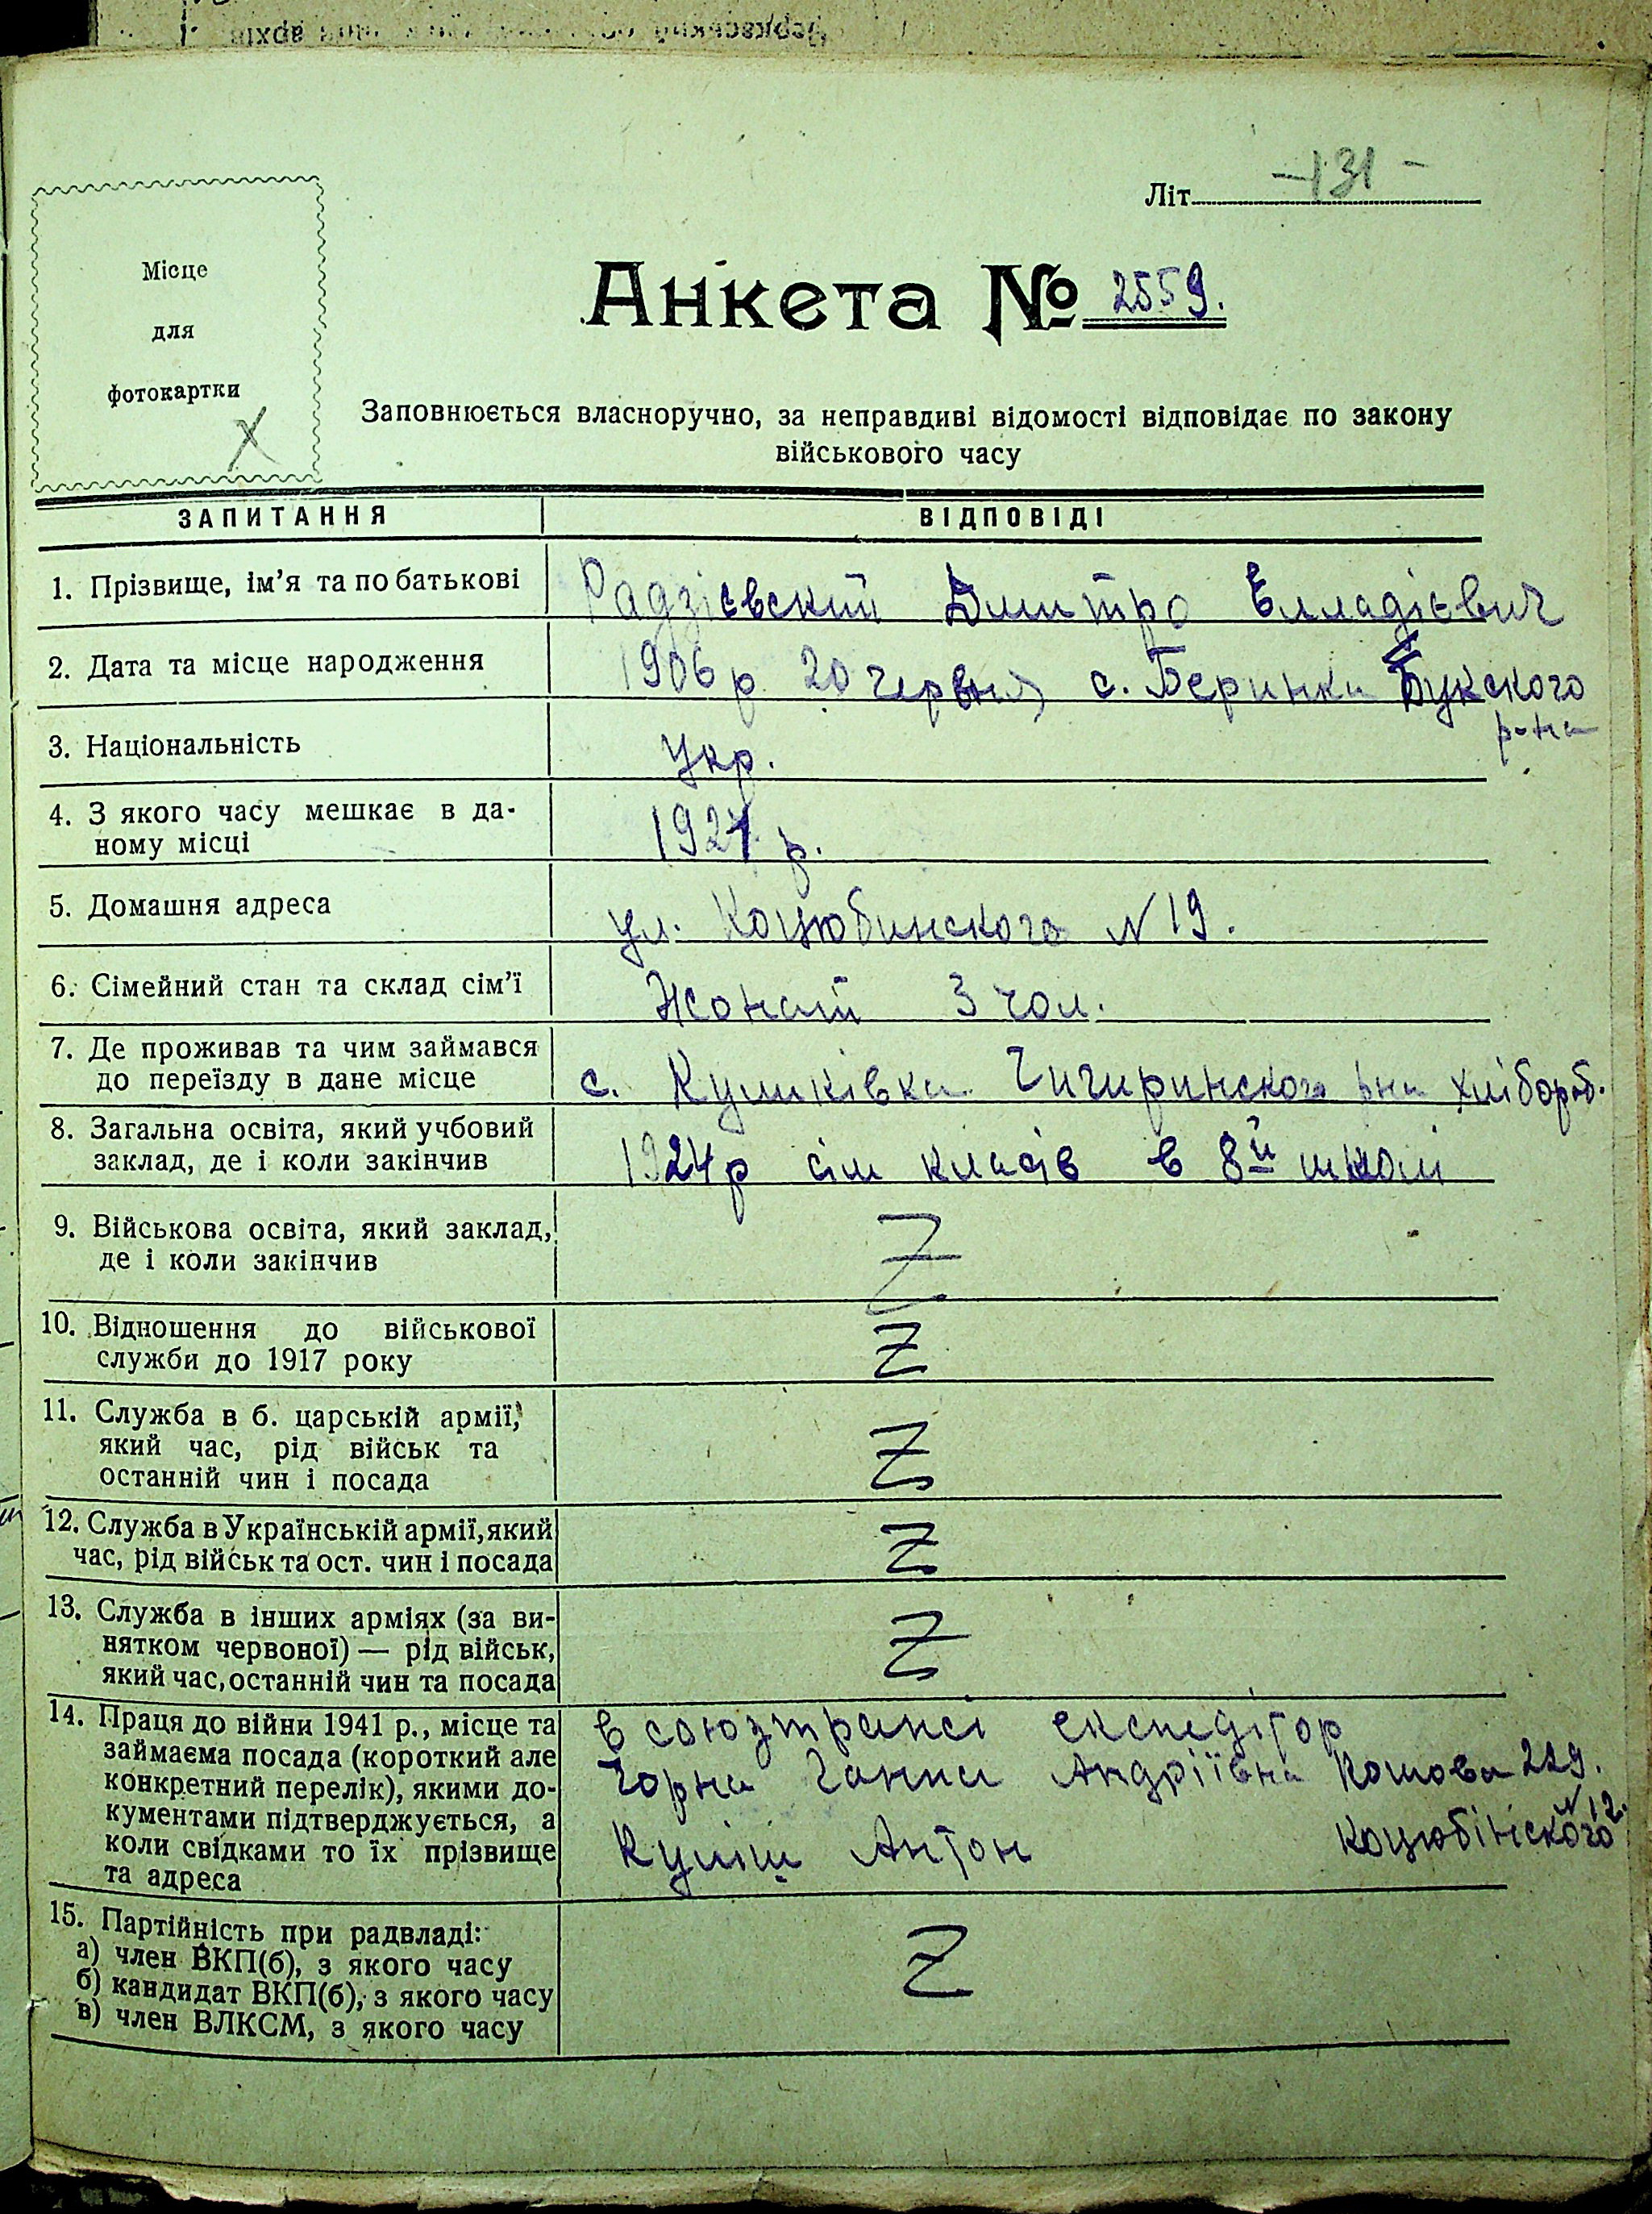 Літ. -131-
Місце
для
фотокартки
X
Анкета № 2559.
Заповнюється власноручно, за неправдиві відомості відповідає по закону
військового часу
ЗАПИТАННЯ ВІДПОВІДІ
1. Прізвище, ім'я та по батькові Радзієвский Дмитро Елладієвич
2. Дата та місце народження 1906 р 20 червня с. Беринка Букского
р-на
3. Національність Укр.
4. З якого часу мешкає в да-
ному місці 1921 р.
5. Домашня адреса ул. Коцюбинского N 19.
6. Сімейний стан та склад сім'ї Жонатий 3 чол.
7. Де проживав та чим займався
до переїзду в дане місце с. Кумківка Чигиринского рна хлібороб.
8. Загальна освіта, який учбовий
заклад, де і коли закінчив 1924 р сім класів в 8й школі
9. Військова освіта, який заклад,
де і коли закінчив Z
10. Відношення до військової
служби до 1917 року Z
11. Служба в б. царській армії,
який час, рід військ та
останній чин і посада Z
12. Служба в Українській армії, який
час, рід військ та ост. чин і посада Z
13. Служба в інших арміях (за ви-
нятком червоної) — рід військ,
який час, останній чин та посада Z
14. Праця до війни 1941 р., місце та
займаєма посада (короткий але
конкретний перелік), якими до-
кументами підтверджується, а
коли свідками то їх прізвище
та адреса
в союзтрансі експедітор
Чорна Ганна Андріївна Кошова 229.
Куліш Антон Коцюбінського N 12.
15. Партійність при радвладі:
а) член ВКП(б), з якого часу
б) кандидат ВКП(б), з якого часу
в) член ВЛКСМ, з якого часу
Z